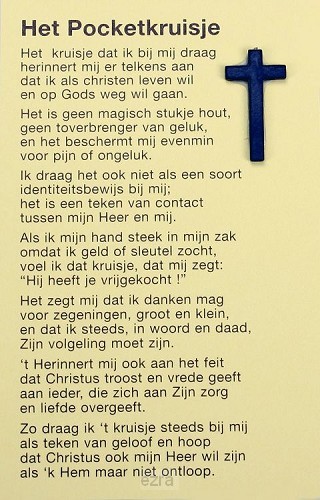 Het Pocketkruisje
Het kruisje dat ik bij mij draag
herinnert mij er telkens aan
dat ik als christen leven wil
en op Gods weg wil gaan.
Het is geen magisch stukje hout,
geen toverbrenger van geluk,
en het beschermt mij evenmin
voor pijn of ongeluk.
Ik draag het ook niet als een soort
identiteitsbewijs bij mij;
het is een teken van contact
tussen mijn Heer en mij.
Als ik mijn hand steek in mijn zak
omdat ik geld of sleutel zocht,
voel ik dat kruisje, dat mij zegt:
“Hij heeft je vrijgekocht !”
Het zegt mij dat ik danken mag
voor zegeningen, groot en klein,
en dat ik steeds, in woord en daad,
Zijn volgeling moet zijn.
‘t Herinnert mij ook aan het feit
dat Christus troost en vrede geeft
aan ieder, die zich aan Zijn zorg
en liefde overgeeft.
Zo draag ik ‘t kruisje steeds bij mij
als teken van geloof en hoop
dat Christus ook mijn Heer wil zijn
als ‘k Hem maar niet ontloop.
ezra